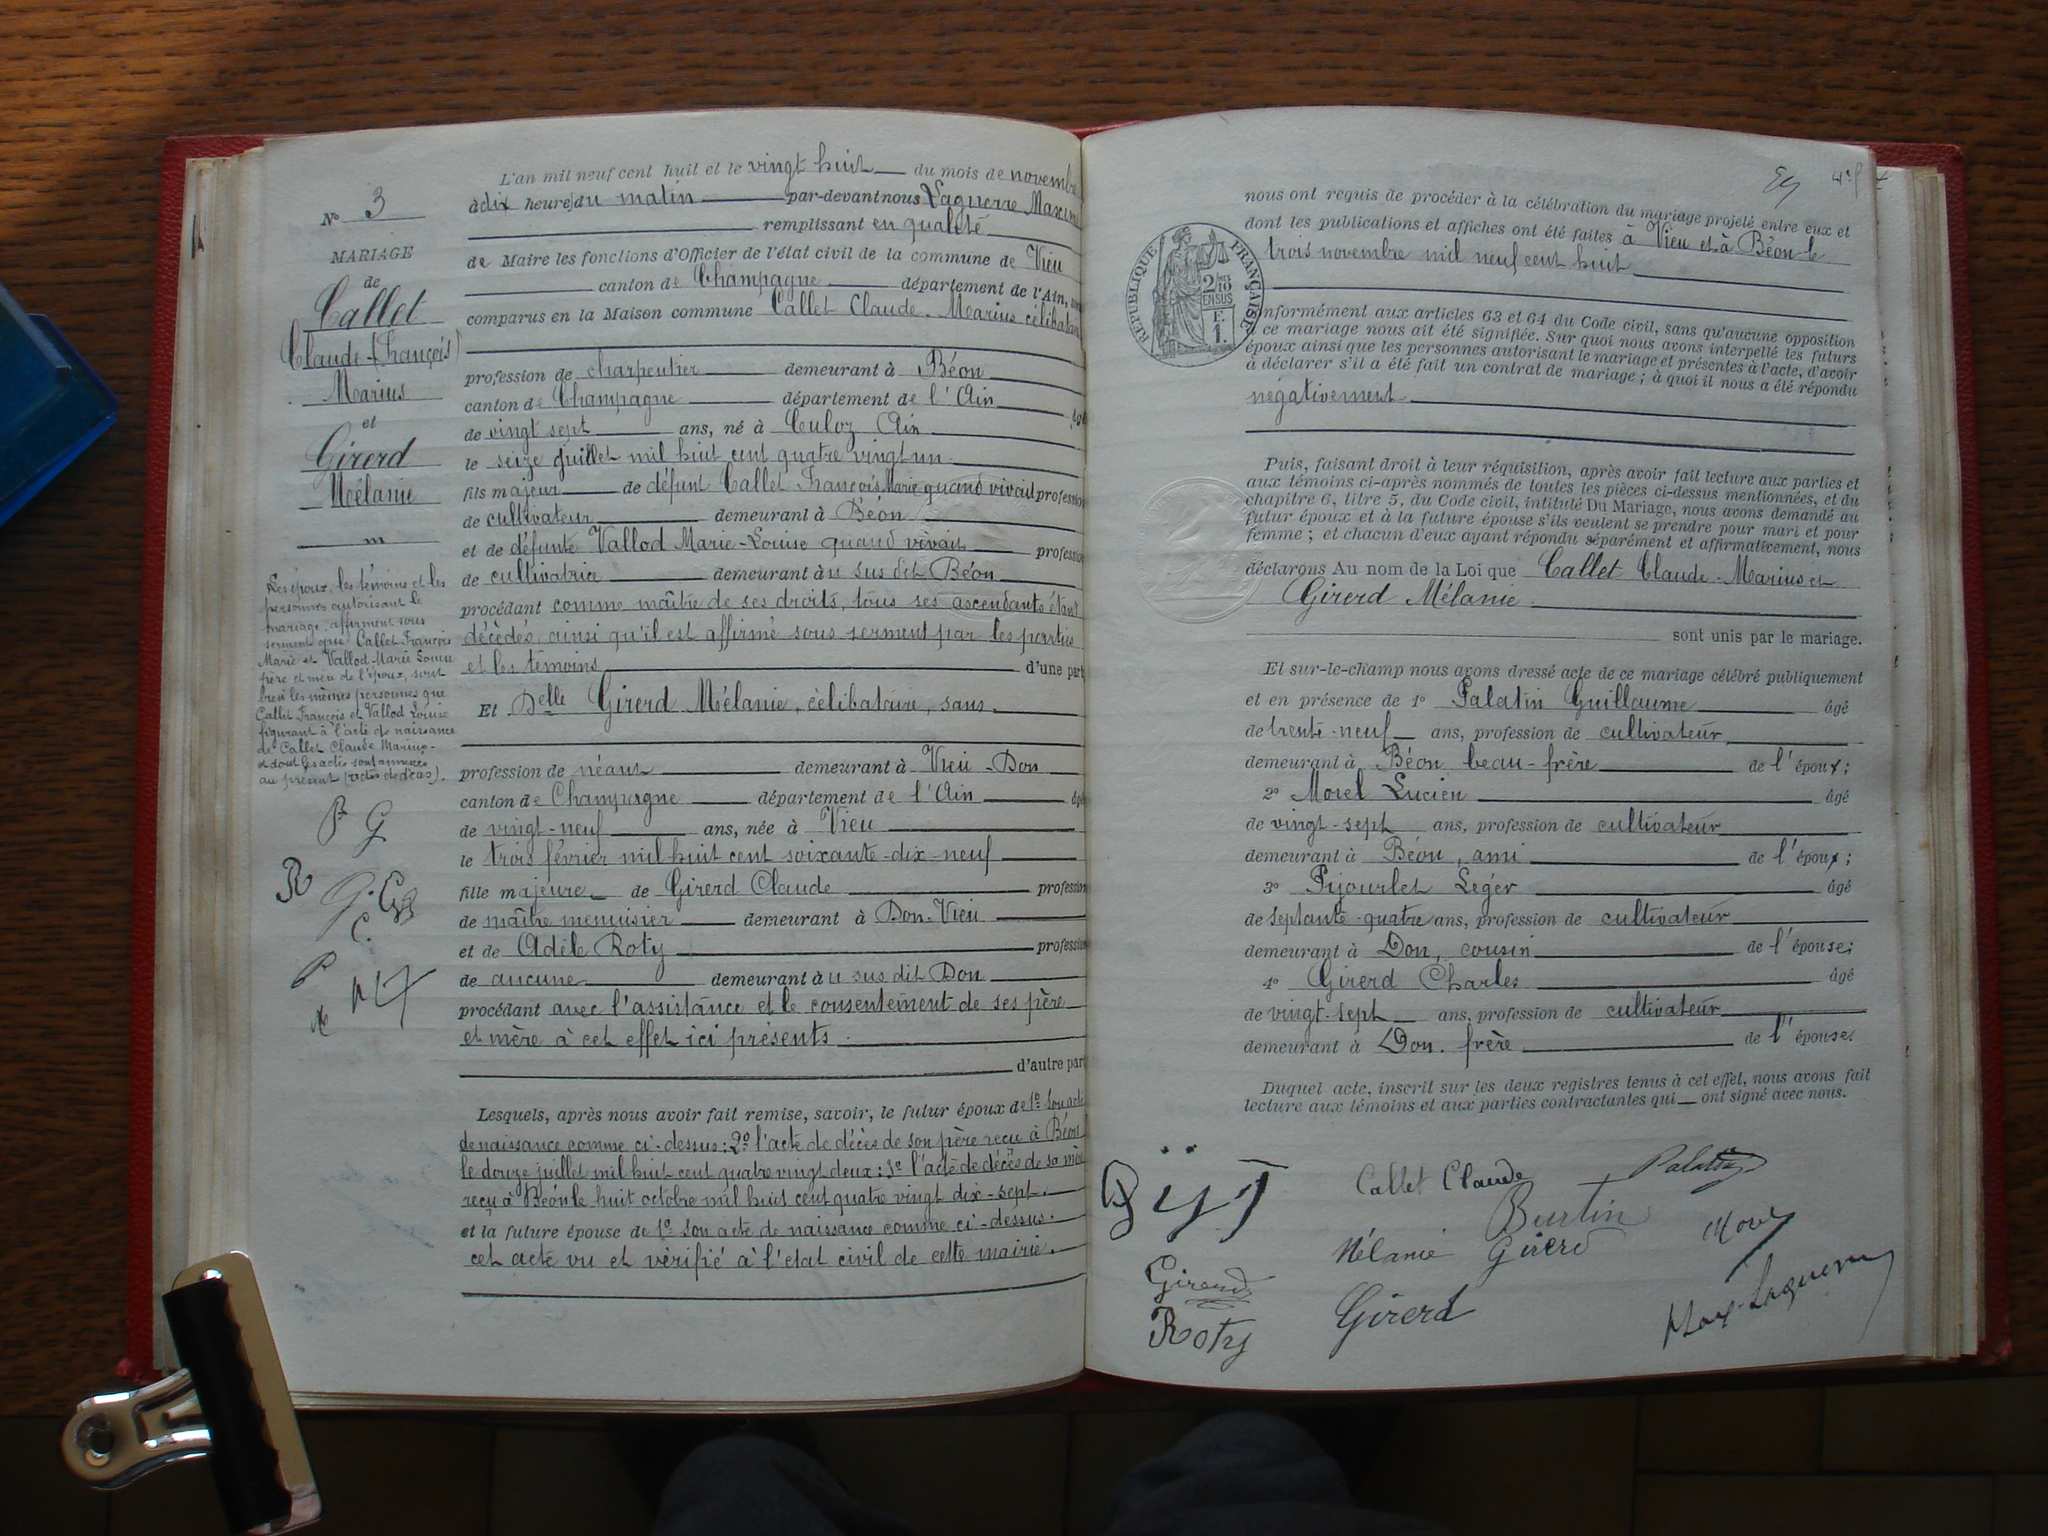 N° 3
MARIAGE
de
Callet
Claude-(François)
Marius
et
Girerd
Mélanie
Les époux, les témoins et les
personnes autorisant le
mariage, affirment sous
serment que Callet François
Marie et Vallod Marie Louise
père et mère de l'époux, sont
bien les mêmes personnes que
Callet François et Vallod Louise
figurant à l'acte de naissance
de Callet Claude Marius
et dont les actes sont annexés
au présent (actes de décès).
P G
R G. C
C.
P
L'an mil neuf cent huit et le vingt huit du mois de novembre
à dix heures du matin par-devant nous Laguerre Maxime
remplissant en qualité
de Maire les fonctions d'Officier de l'état civil de la commune de Vieu
canton de Champagne département de l'Ain, sont
comparus en la Maison commune Callet Claude-Marius célibataire
profession de charpentier demeurant à Béon
canton de Champagne département de l'Ain âgé
de vingt sept ans, né à Culoz Ain
le seize juillet mil huit cent quatre vingt un
fils majeur de défunt Callet François Marie quand vivait profession
de cultivateur demeurant à Béon
et de défunte Vallod Marie-Louise quand vivait profession
de cultivatrice demeurant au sus dit Béon
procédant comme maître de ses droits, tous ses ascendants étant
décédés ainsi qu'il est affirmé sous serment par les parties
et les témoins d'une part
Et Delle Girerd Mélanie, célibataire, sans
profession de néant demeurant à Vieu-Don
canton de Champagne département de l'Ain âgée
de vingt-neuf ans, née à Vieu
le trois février mil huit cent soixante-dix-neuf
fille majeure de Girerd Claude profession
de maître menuisier demeurant à Don-Vieu
et de Adèle Roty profession
de aucune demeurant au sus dit Don
procédant avec l'assistance et le consentement de ses père
et mère à cet effet ici présents
d'autre part
Lesquels, après nous avoir fait remise, savoir, le futur époux de 1° son acte
de naissance comme ci-dessus: 2° l'acte de décès de son père reçu à Béon
le douze juillet mil huit cent quatre vingt deux: 3° l'acte de décès de sa mère
reçu à Béon le huit octobre mil huit cent quatre vingt dix-sept.
et la future épouse de 1° son acte de naissance comme ci-dessus.
cet acte vu et vérifié à l'état civil de cette mairie.
nous ont requis de procéder à la célébration du mariage projeté entre eux et
dont les publications et affiches ont été faites à Vieu et à Béon le
trois novembre mil neuf cent huit
RÉPUBLIQUE FRANÇAISE
2/10 EN SUS
F. 1.
conformément aux articles 63 et 64 du Code civil, sans qu'aucune opposition
à ce mariage nous ait été signifiée. Sur quoi nous avons interpellé les futurs
époux ainsi que les personnes autorisant le mariage et présentes à l'acte, d'avoir
à déclarer s'il a été fait un contrat de mariage; à quoi il nous a été répondu
négativement
Puis, faisant droit à leur réquisition, après avoir fait lecture aux parties et
aux témoins ci-après nommés de toutes les pièces ci-dessus mentionnées, et du
chapitre 6, titre 5, du Code civil, intitulé Du Mariage, nous avons demandé au
futur époux et à la future épouse s'ils veulent se prendre pour mari et pour
femme; et chacun d'eux ayant répondu séparément et affirmativement, nous
déclarons Au nom de la Loi que Callet Claude-Marius et
Girerd Mélanie
sont unis par le mariage.
Et sur-le-champ nous avons dressé acte de ce mariage célébré publiquement
et en présence de 1° Palatin Guillaume âgé
de trente-neuf ans, profession de cultivateur
demeurant à Béon beau-frère de l'époux;
2° Morel Lucien âgé
de vingt-sept ans, profession de cultivateur
demeurant à Béon, ami de l'époux;
3° Pijourlet Leger âgé
de septante-quatre ans, profession de cultivateur
demeurant à Don, cousin de l'épouse;
4° Girerd Charles âgé
de vingt-sept ans, profession de cultivateur
demeurant à Don. frère de l'épouse.
Duquel acte, inscrit sur les deux registres tenus à cet effet, nous avons fait
lecture aux témoins et aux parties contractantes qui ont signé avec nous.
Callet Claude Palatin
Burtin Morel
Mélanie Girerd
Girerd
Girerd Max-Laguerre
Roty